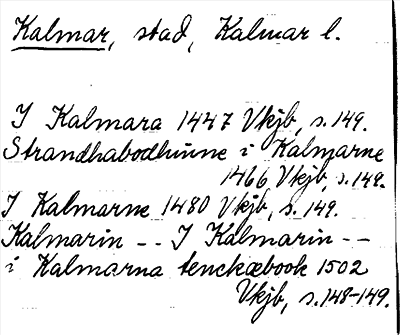 Kalmar, stad, Kalmar l.
I Kalmara 1447 Vkjb, s. 149.
Strandhabodhūne i Kalmarne
1466 Vkjb, s. 149.
I Kalmarne 1480 Vkjb, s. 149.
Kalmarin -- I Kalmarin --
i Kalmarna tenckæbook 1502
Vkjb, s. 148-149.